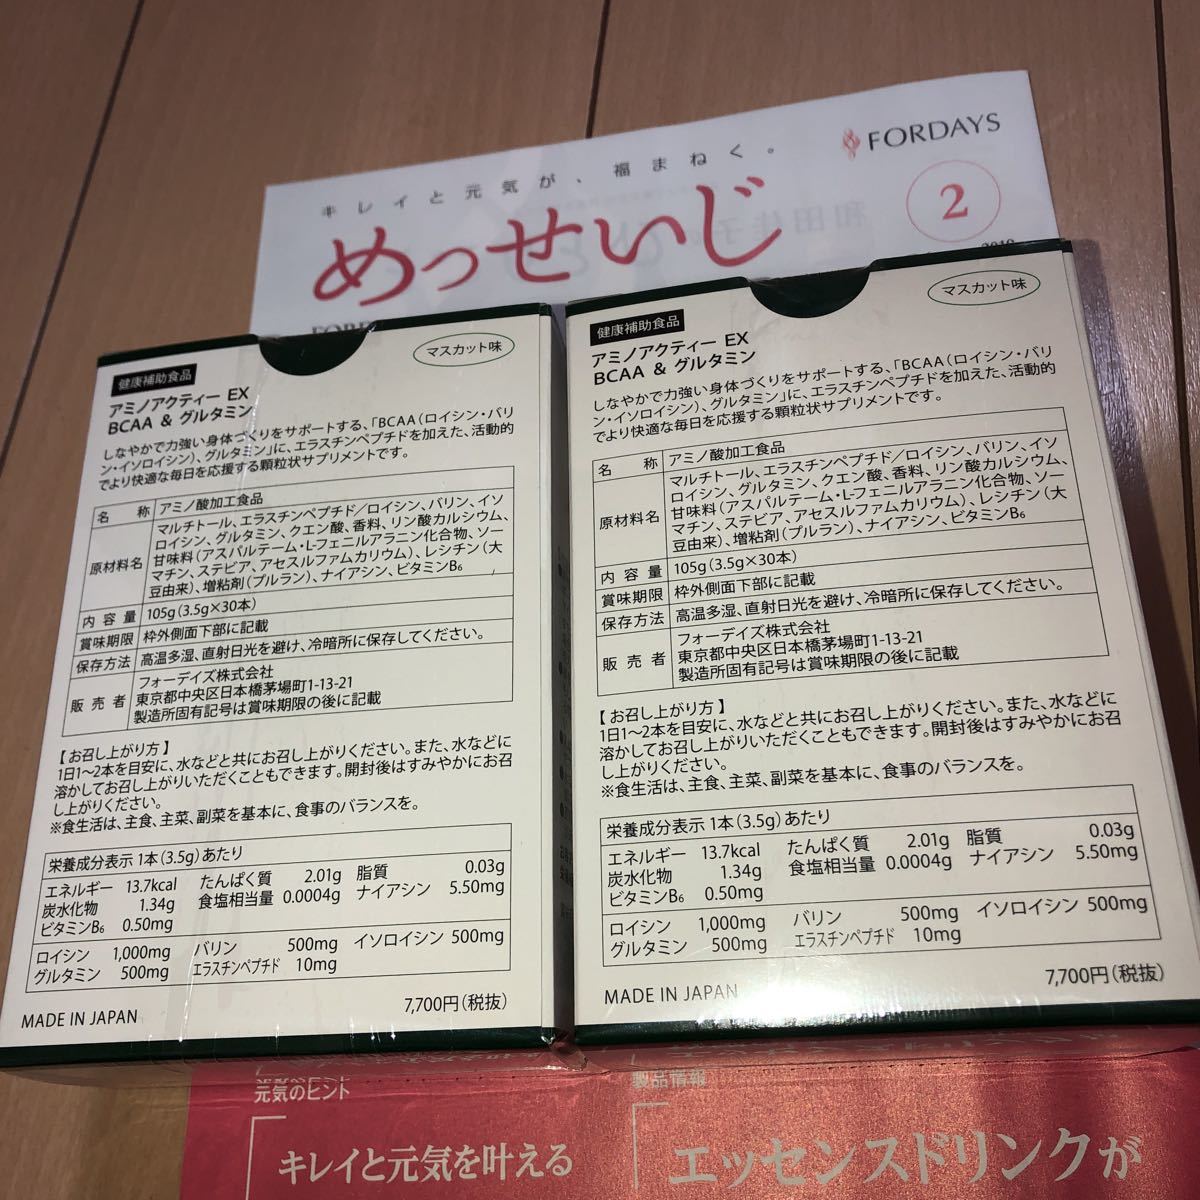 FORDAYS
キレイと元気が、福まねく。
めっせいじ
2
健康補助食品
マスカット味
アミノアクティー EX
BCAA & グルタミン
しなやかで力強い身体づくりをサポートする、「BCAA（ロイシン・バリ
ン・イソロイシン）、グルタミン」に、エラスチンペプチドを加えた、活動的
でより快適な毎日を応援する顆粒状サプリメントです。
名称 アミノ酸加工食品
原材料名 マルチトール、エラスチンペプチド／ロイシン、バリン、イソ
ロイシン、グルタミン、クエン酸、香料、リン酸カルシウム、
甘味料（アスパルテーム・L-フェニルアラニン化合物、ソー
マチン、ステビア、アセスルファムカリウム）、レシチン（大
豆由来）、増粘剤（プルラン）、ナイアシン、ビタミンB₆
内容量 105g（3.5g×30本）
賞味期限 枠外側面下部に記載
保存方法 高温多湿、直射日光を避け、冷暗所に保存してください。
販売者 フォーデイズ株式会社
東京都中央区日本橋茅場町1-13-21
製造所固有記号は賞味期限の後に記載
【お召し上がり方】
1日1～2本を目安に、水などと共にお召し上がりください。また、水などに
溶かしてお召し上がりいただくこともできます。開封後はすみやかにお召
し上がりください。
※食生活は、主食、主菜、副菜を基本に、食事のバランスを。
栄養成分表示 1本（3.5g）あたり
エネルギー 13.7kcal たんぱく質 2.01g 脂質 0.03g
炭水化物 1.34g 食塩相当量 0.0004g ナイアシン 5.50mg
ビタミンB₆ 0.50mg
ロイシン 1,000mg バリン 500mg イソロイシン 500mg
グルタミン 500mg エラスチンペプチド 10mg
7,700円（税抜）
MADE IN JAPAN
健康補助食品
マスカット味
アミノアクティー EX
BCAA & グルタミン
しなやかで力強い身体づくりをサポートする、「BCAA（ロイシン・バリ
ン・イソロイシン）、グルタミン」に、エラスチンペプチドを加えた、活動的
でより快適な毎日を応援する顆粒状サプリメントです。
名称 アミノ酸加工食品
原材料名 マルチトール、エラスチンペプチド／ロイシン、バリン、イソ
ロイシン、グルタミン、クエン酸、香料、リン酸カルシウム、
甘味料（アスパルテーム・L-フェニルアラニン化合物、ソー
マチン、ステビア、アセスルファムカリウム）、レシチン（大
豆由来）、増粘剤（プルラン）、ナイアシン、ビタミンB₆
内容量 105g（3.5g×30本）
賞味期限 枠外側面下部に記載
保存方法 高温多湿、直射日光を避け、冷暗所に保存してください。
販売者 フォーデイズ株式会社
東京都中央区日本橋茅場町1-13-21
製造所固有記号は賞味期限の後に記載
【お召し上がり方】
1日1～2本を目安に、水などと共にお召し上がりください。また、水などに
溶かしてお召し上がりいただくこともできます。開封後はすみやかにお召
し上がりください。
※食生活は、主食、主菜、副菜を基本に、食事のバランスを。
栄養成分表示 1本（3.5g）あたり
エネルギー 13.7kcal たんぱく質 2.01g 脂質 0.03g
炭水化物 1.34g 食塩相当量 0.0004g ナイアシン 5.50mg
ビタミンB₆ 0.50mg
ロイシン 1,000mg バリン 500mg イソロイシン 500mg
グルタミン 500mg エラスチンペプチド 10mg
7,700円（税抜）
MADE IN JAPAN
元気のヒント
「キレイと元気を叶える
製品情報
「エッセンスドリンクが